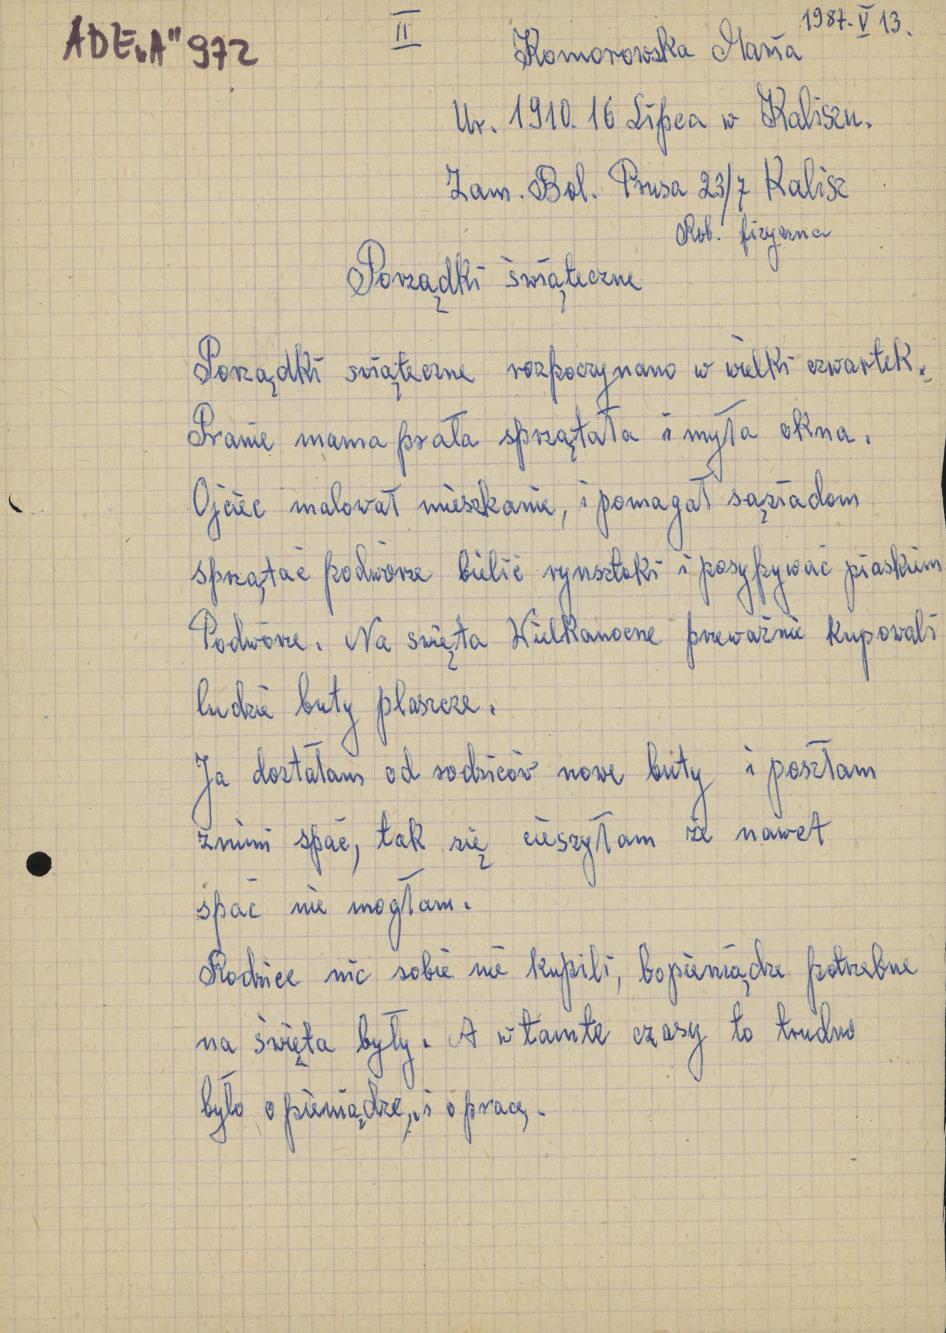 1987. V 13.
ADE „A" 972
II
Komorowska Maria
Ur. 1910. 16 Lipca w Kaliszu.
Zam. Bol. Prusa 23/7 Kalisz
Rob. fizyczna
Porządki świąteczne
Porządki swiąteczne rozpoczynano w wielki czwartek.
Pranie mama prała sprzątała i myła okna.
Ojciec malował mieszkanie, i pomagał sąsiadom
sprzątać podwórze bielić rynsztoki i posypywać piaskiem
Podwórze. Na święta Wielkanocne przeważnie kupowali
ludzie buty płaszcze.
Ja dostałam od rodziców nowe buty i poszłam
znimi spać, tak się cieszyłam że nawet
spać nie mogłam.
Rodzice nic sobie nie kupili, bopieniądze potrzebne
na święta były. A w tamte czasy to trudno
było o pieniądze, i o pracę.